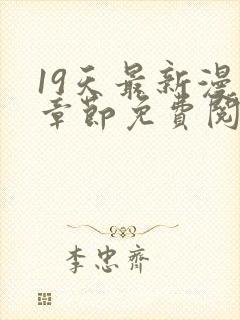 19天最新漫
章節免費閱
李忠齊